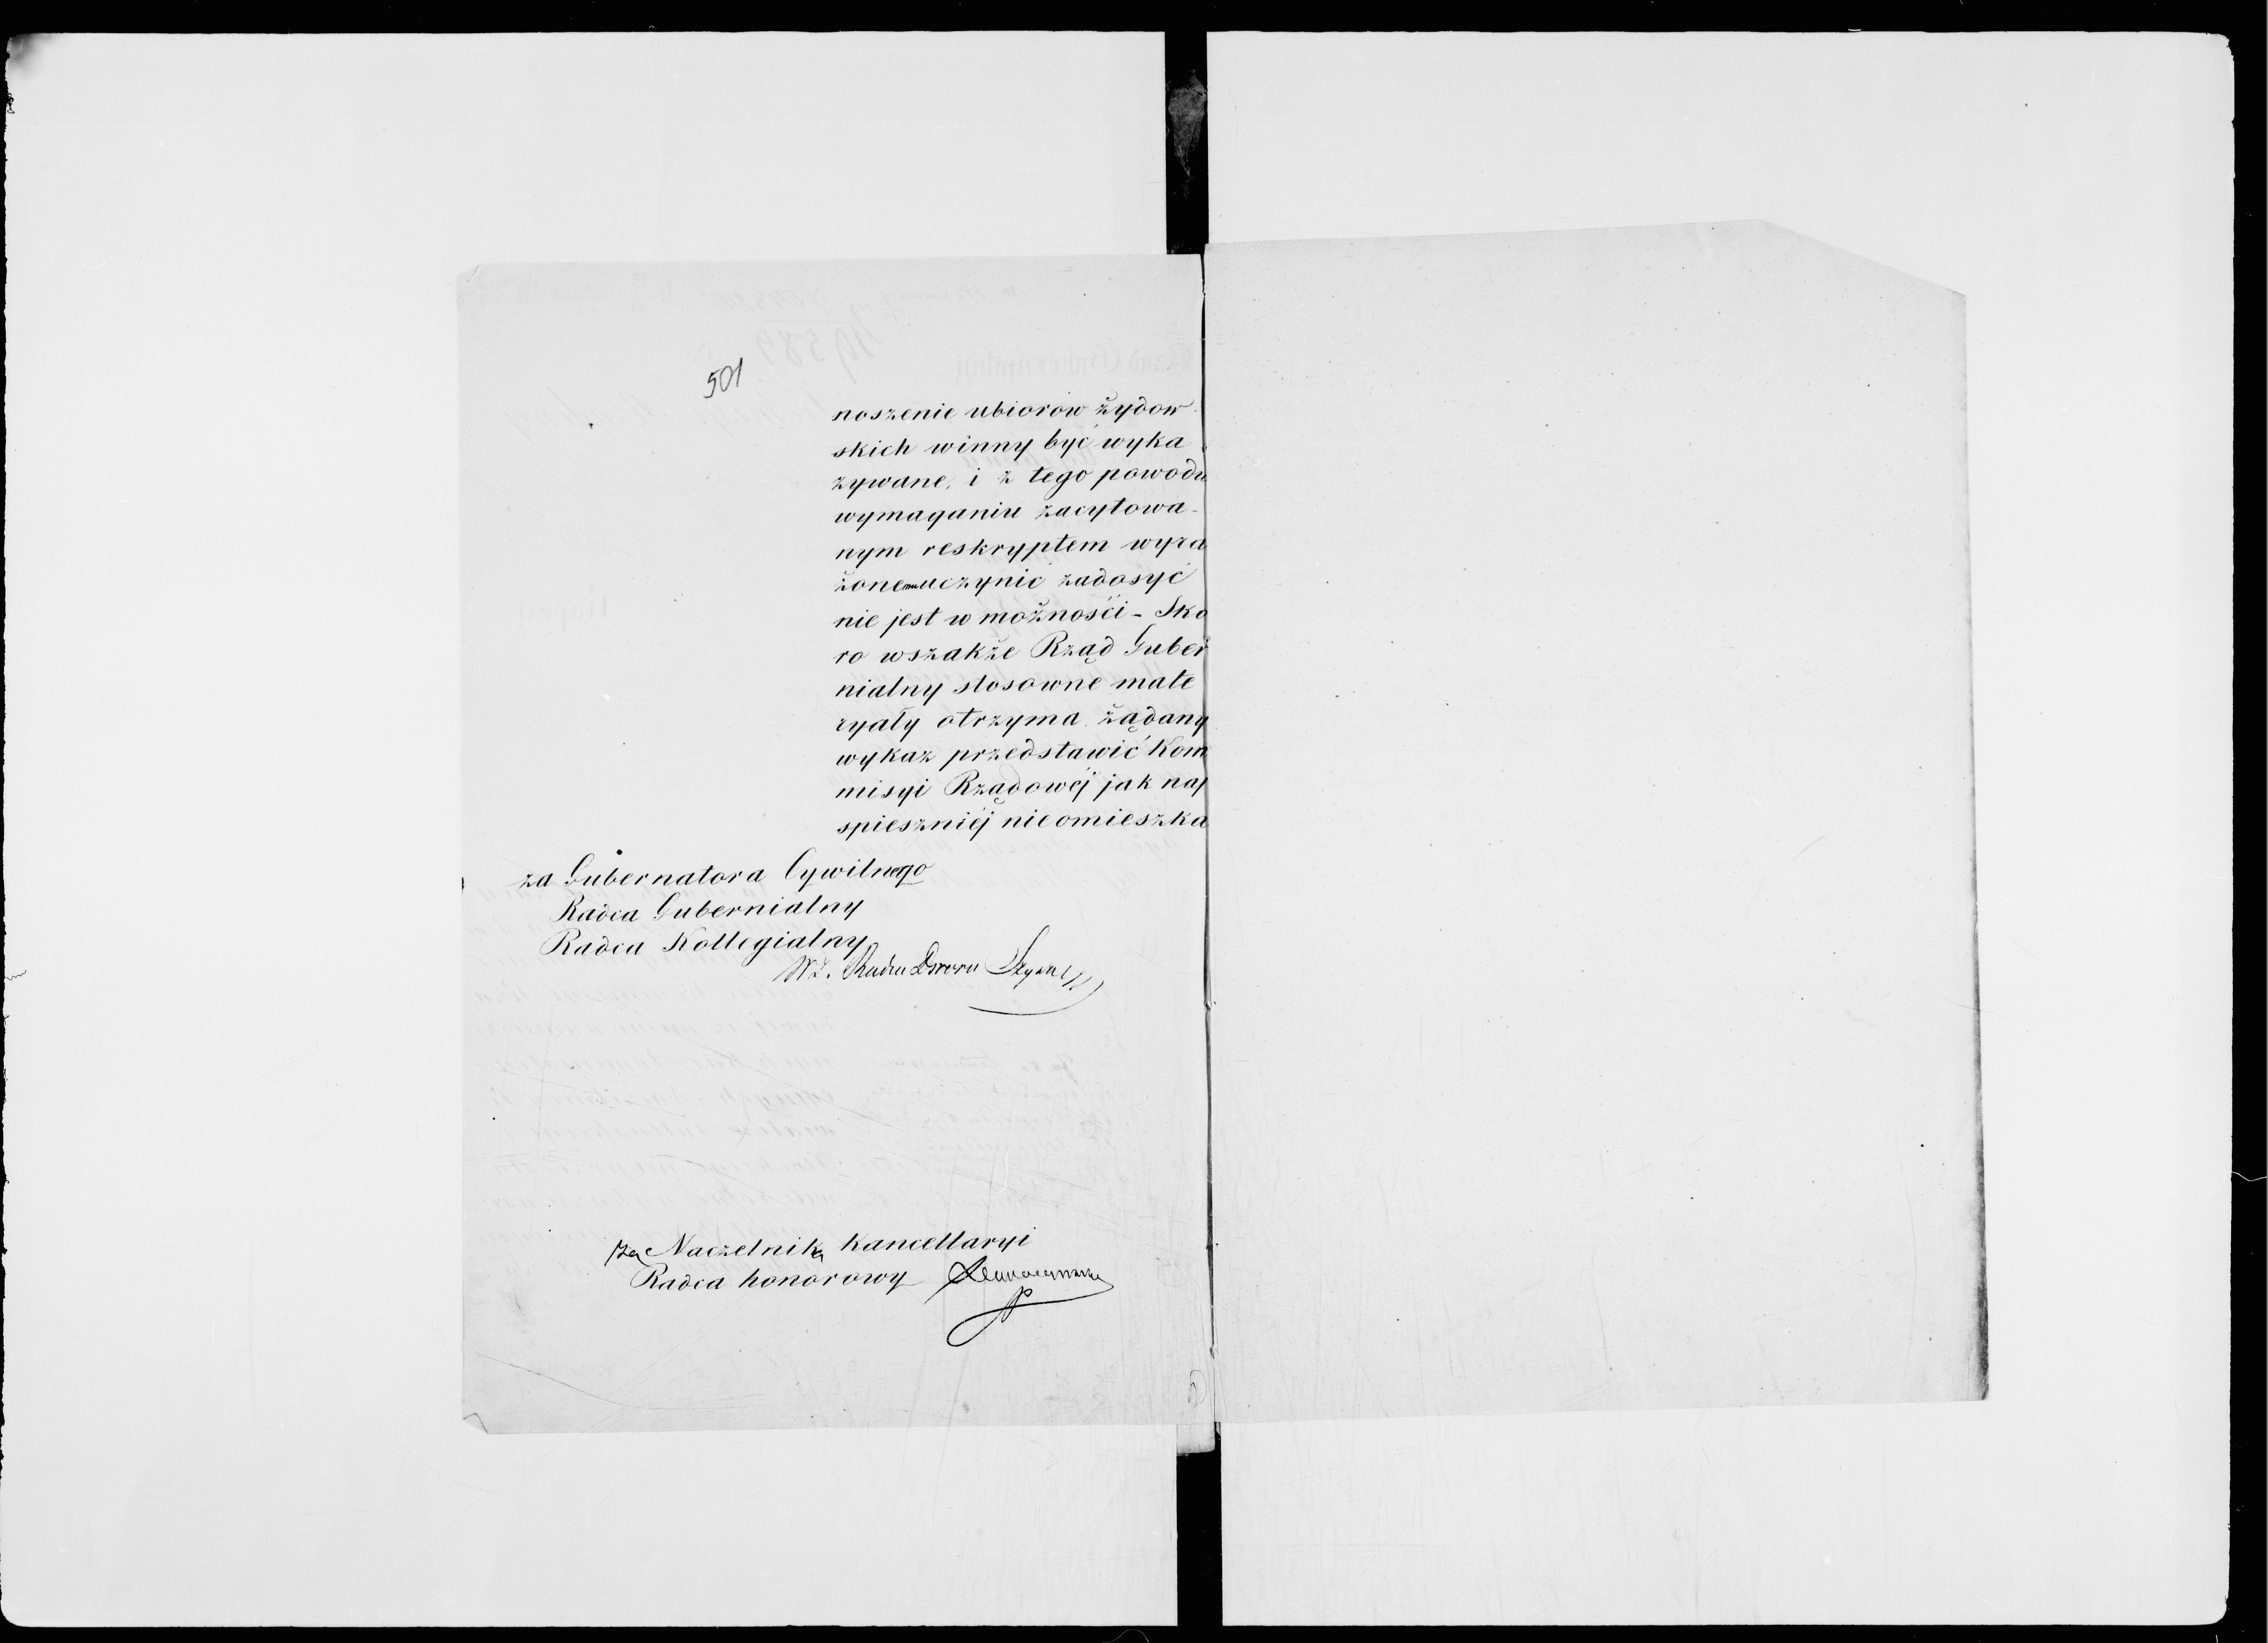 501
noszenie ubiorów żydow
skich winny być wyka
zywane, i z tego powodu
wymaganiu zacytowa-
nym reskryptem wyra
żonemu uczynić zadosyć
nie jest w możności - Sko
ro wszakże Rząd Guber
nialny stosowne mate
ryały otrzyma żądany
wykaz przedstawić Kom
misyi Rządowéj jak naj
spieszniéj nieomieszka
za Gubernatora Cywilnego
Radca Gubernialny
Radca Kollegialny
Wz. Radca Dworu
za Naczelnika Kancellaryi
Radca honorowy